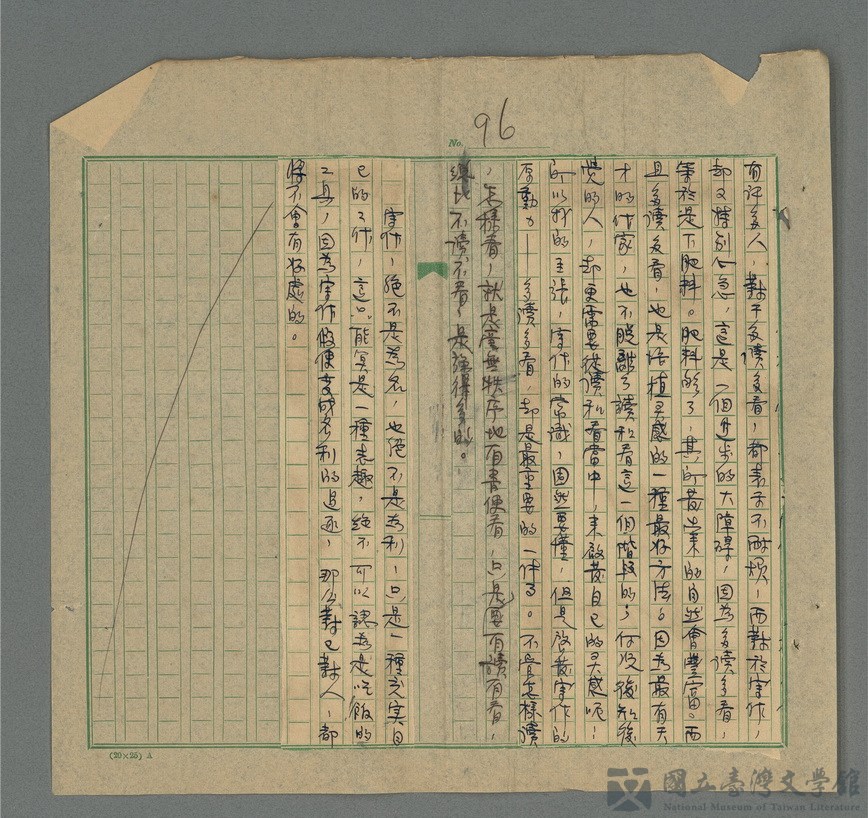 No. 96
有許多人，對于多讀多看，都表示不耐煩，而對於寫作，
却又特別心急，這是一個進步的大障碍，因為多讀多看，
等於是下肥料。肥料夠了，其所發出來的自然會豐富。而
且多讀多看，也是培植灵感的一種最好方法。因為最有天
才的作家，也不脫離了讀和看這一個階段的，何況後知後
覺的人，却更需要從讀和看當中，來啟發自己的灵感呢！
所以我的主張，寫作的常識，固然要懂，但是啟發寫作的
原動力——多讀多看，却是最重要的一件事。不管怎樣讀
，怎樣看，就是毫無秩序地有書便看，只是要有讀有看，
總比不讀不看，是強得多的。
寫作，絕不是為名，也絕不是為利，只是一種充实自
己的工作，這只能算是一種志趣，絕不可以認為是吃飯的
工具，因為寫作假使变成名利的追逐，那么對己對人，都
將不會有好處的。
(20×25) A
國立臺灣文學館
National Museum of Taiwan Literature